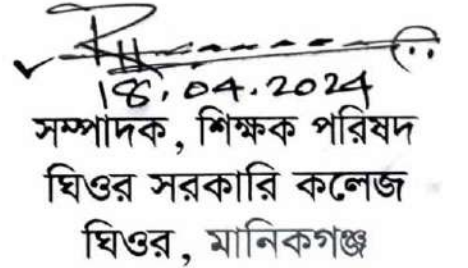 18.04.2024
সম্পাদক, শিক্ষক পরিষদ
ঘিওর সরকারি কলেজ
ঘিওর, মানিকগঞ্জ